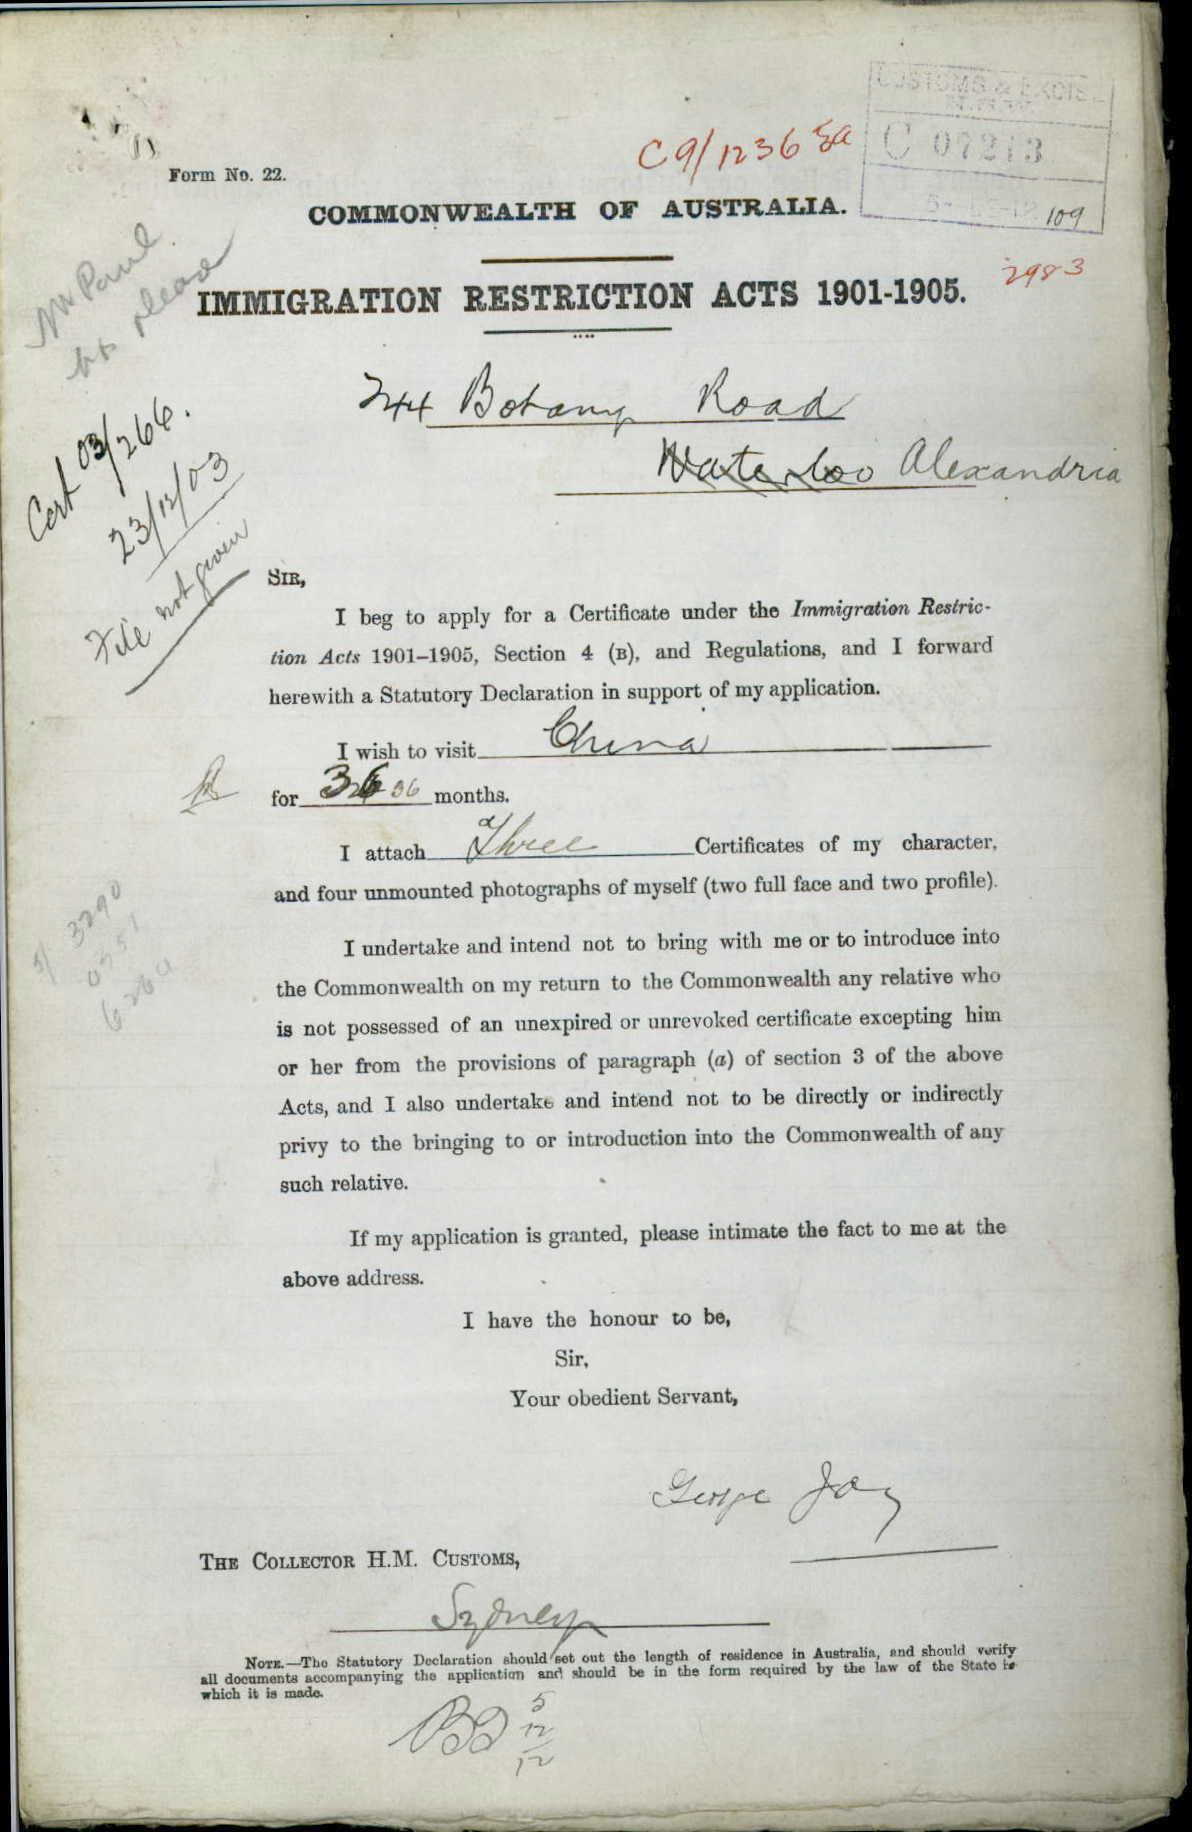 CUSTOMS & EXCISE
C 07213
109
C9/12365a
Form No. 22.
COMMONWEALTH OF AUSTRALIA.
2983
IMMIGRATION RESTRICTION ACTS 1901-1905.
Mr Paul
please
244 Botany Road
Waterloo Alexandria
Cert 03/264.
23/12/03
File not given
SIR,
I beg to apply for a Certificate under the Immigration Restric-
tion Acts 1901–1905, Section 4 (B), and Regulations, and I forward
herewith a Statutory Declaration in support of my application.
I wish to visit China
for 36 36 months.
I attach Three Certificates of my character,
and four unmounted photographs of myself (two full face and two profile).
3290
0351
I undertake and intend not to bring with me or to introduce into
the Commonwealth on my return to the Commonwealth any relative who
is not possessed of an unexpired or unrevoked certificate excepting him
or her from the provisions of paragraph (a) of section 3 of the above
Acts, and I also undertake and intend not to be directly or indirectly
privy to the bringing to or introduction into the Commonwealth of any
such relative.
If my application is granted, please intimate the fact to me at the
above address.
I have the honour to be,
Sir,
Your obedient Servant,
George Joy
THE COLLECTOR H.M. CUSTOMS,
Sydney
NOTE.—The Statutory Declaration should set out the length of residence in Australia, and should verify
all documents accompanying the application and should be in the form required by the law of the State in
which it is made.
5
12
12